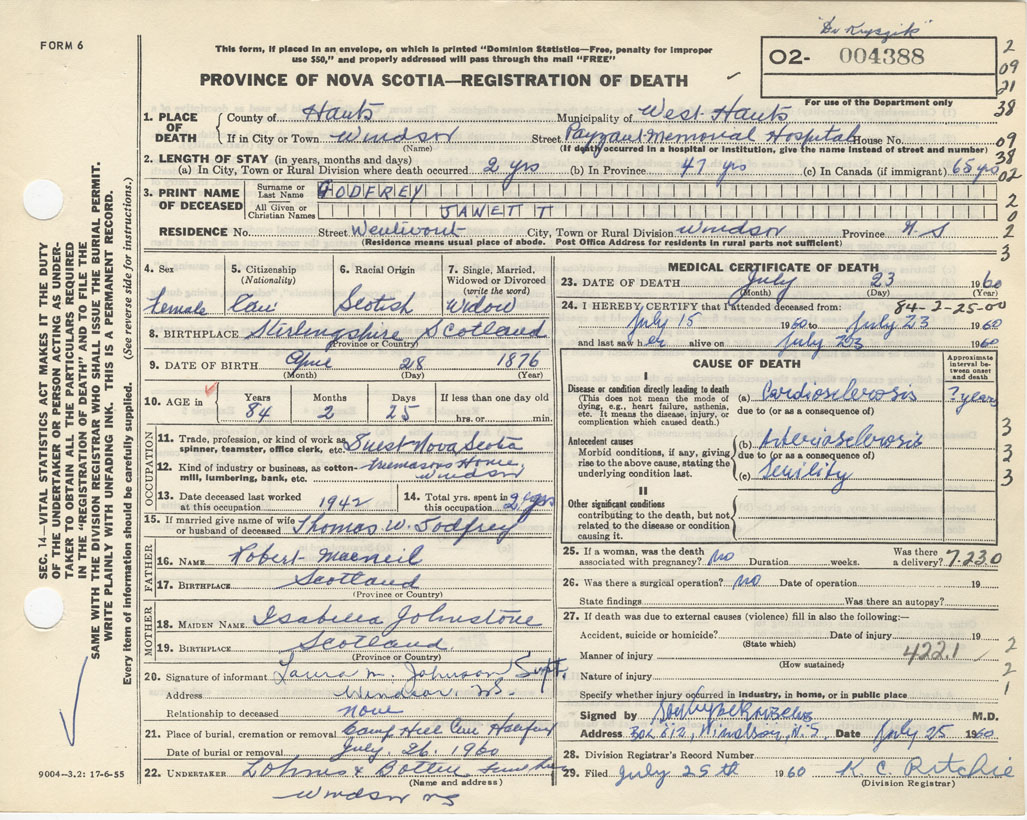 FORM 6
This form, if placed in an envelope, on which is printed "Dominion Statistics—Free, penalty for improper
use $50," and properly addressed will pass through the mail "FREE"
PROVINCE OF NOVA SCOTIA—REGISTRATION OF DEATH
O2- 004388
For use of the Department only
2
09
21
38
09
38
02
2
0
2
3
1. PLACE OF DEATH
County of Hants Municipality of West Hants
If in City or Town Windsor Street Payzant Memorial Hospital House No.
(Name) (If death occurred in a hospital or institution, give the name instead of street and number)
2. LENGTH OF STAY (in years, months and days)
(a) In City, Town or Rural Division where death occurred 2 yrs (b) In Province 47 yrs (c) In Canada (if immigrant) 65 yrs
3. PRINT NAME OF DECEASED
Surname or Last Name GODFREY
All Given or Christian Names
RESIDENCE No. Street City, Town or Rural Division Windsor Province N.S
(Residence means usual place of abode. Post Office Address for residents in rural parts not sufficient)
4. Sex 5. Citizenship (Nationality) 6. Racial Origin 7. Single, Married, Widowed or Divorced (write the word)
Female Can Scotish Widow
8. BIRTHPLACE Stirlingshire Scotland
(Province or Country)
9. DATE OF BIRTH 28 1876
(Month) (Day) (Year)
10. AGE in Years Months Days If less than one day old
84 2 25 hrs. or min.
OCCUPATION
11. Trade, profession, or kind of work as spinner, teamster, office clerk, etc. Guest Nova Scotia
12. Kind of industry or business, as cotton-mill, lumbering, bank, etc. Home Windsor
13. Date deceased last worked at this occupation 1942 14. Total yrs. spent in this occupation
15. If married give name of wife or husband of deceased Thomas W. Godfrey
FATHER
16. NAME Robert Macneil
17. BIRTHPLACE Scotland
(Province or Country)
MOTHER
18. MAIDEN NAME Isabella Johnstone
19. BIRTHPLACE Scotland
(Province or Country)
20. Signature of informant Laura M. Johnson Supt.
Address Windsor, NS.
Relationship to deceased none
21. Place of burial, cremation or removal Camp Hill Cem Halifax
Date of burial or removal July. 26. 1960
22. UNDERTAKER
(Name and address)
Windsor NS
MEDICAL CERTIFICATE OF DEATH
23. DATE OF DEATH July 23 1960
(Month) (Day) (Year)
84-2-25-00
24. I HEREBY CERTIFY that I attended deceased from:
July 15 1960 to July 23 1960
and last saw her alive on July 23 1960
CAUSE OF DEATH
Approximate interval between onset and death
I
Disease or condition directly leading to death
(This does not mean the mode of dying, e.g., heart failure, asthenia, etc. It means the disease, injury, or complication which caused death.)
(a) Cardiosclerosis ? years
due to (or as a consequence of)
Antecedent causes
Morbid conditions, if any, giving rise to the above cause, stating the underlying condition last.
(b) Arteriosclerosis
due to (or as a consequence of)
(c) Senility
3
2
3
II
Other significant conditions
contributing to the death, but not related to the disease or condition causing it.
25. If a woman, was the death associated with pregnancy? no Duration weeks. Was there a delivery? 7-230
26. Was there a surgical operation? no Date of operation 19
State findings Was there an autopsy?
27. If death was due to external causes (violence) fill in also the following:—
Accident, suicide or homicide? Date of injury 19
(State which)
Manner of injury 422.1
(How sustained)
2
2
1
Nature of injury
Specify whether injury occurred in industry, in home, or in public place
Signed by M.D.
Address Box 612, Windsor, N.S. Date July 25 1960
28. Division Registrar's Record Number
29. Filed July 25th 1960 K. C. Ritchie
(Division Registrar)
SEC. 14—VITAL STATISTICS ACT MAKES IT THE DUTY
OF THE UNDERTAKER OR PERSON ACTING AS UNDER-
TAKER TO OBTAIN ALL THE PARTICULARS REQUIRED
IN THE "REGISTRATION OF DEATH" AND TO FILE THE
SAME WITH THE DIVISION REGISTRAR WHO SHALL ISSUE THE BURIAL PERMIT.
WRITE PLAINLY WITH UNFADING INK. THIS IS A PERMANENT RECORD.
Every item of information should be carefully supplied. (See reverse side for instructions.)
9004—3.2: 17-6-55